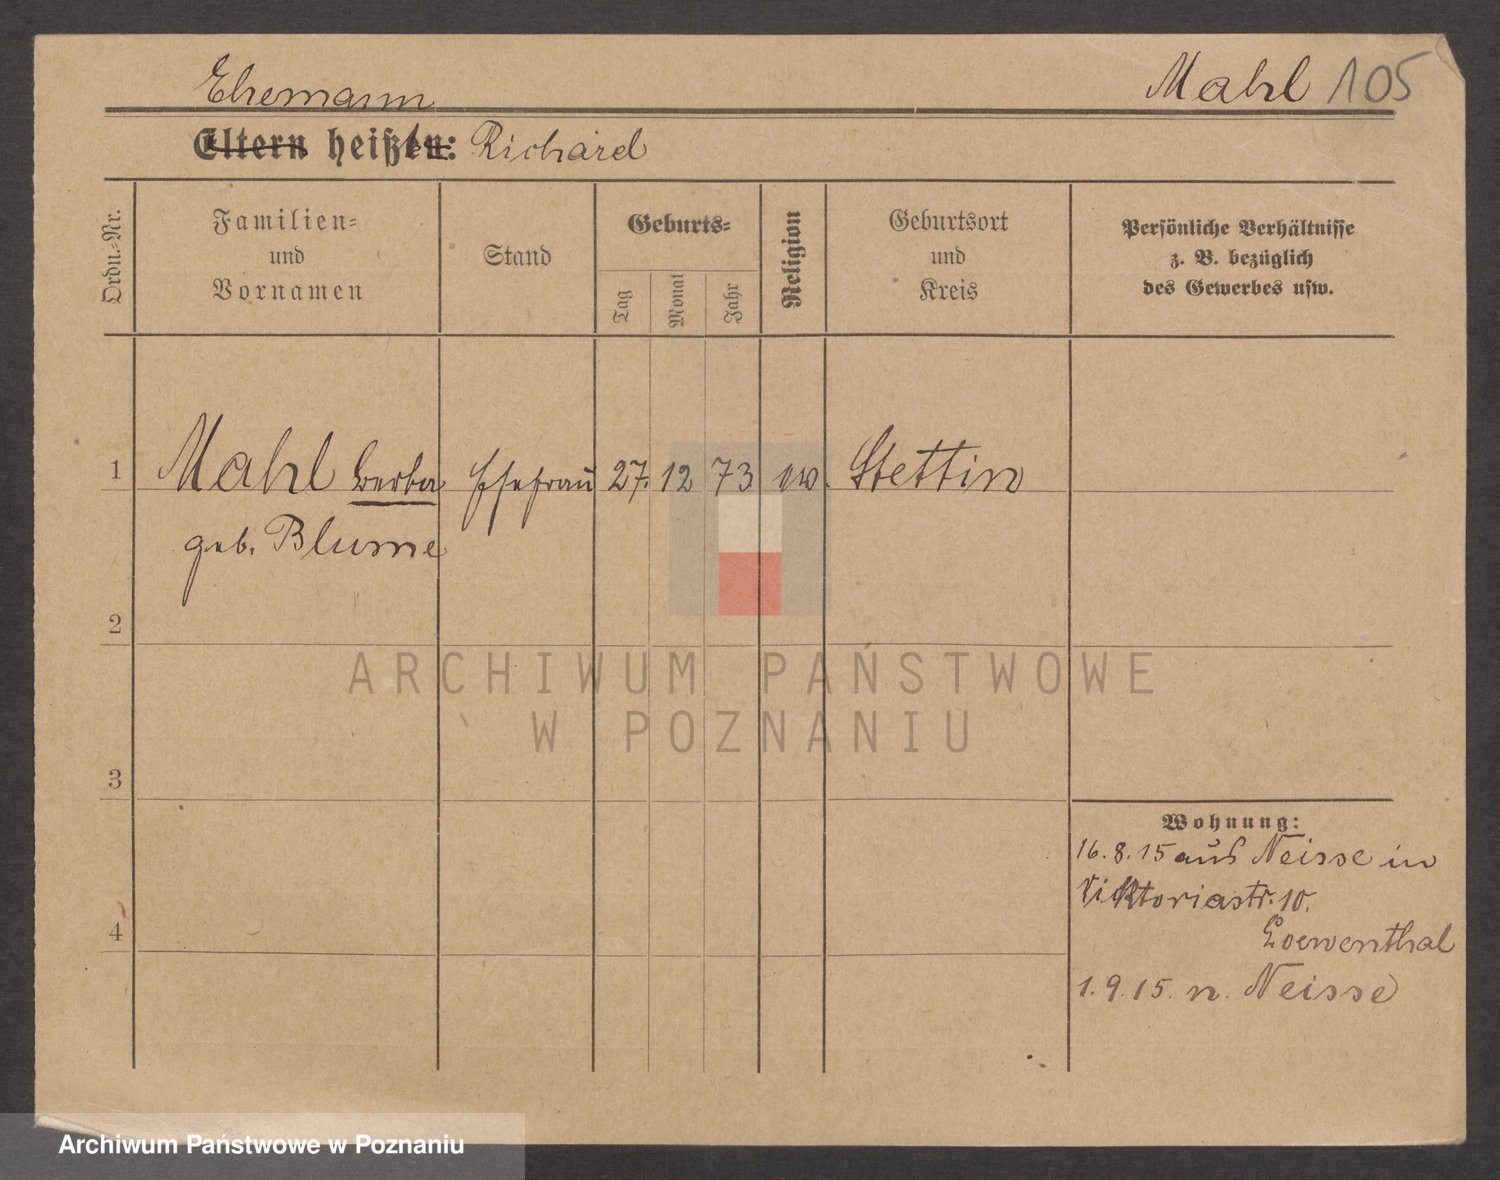 Ehemann
Mahl 105
Eltern heißen: Richard
Ordn.-Nr.
Familien-
und
Vornamen
Stand
Geburts-
Tag
Monat
Jahr
Religion
Geburtsort
und
Kreis
Persönliche Verhältnisse
z. B. bezüglich
des Gewerbes usw.
1 Mahl Ehefrau 27. 12 73 Stettin
geb. Blume
2
3
4
Wohnung:
16.8.15 aus Neisse in
Viktoriastr. 10.
Loewenthal
1.9.15. n. Neisse
ARCHIWUM PAŃSTWOWE
W POZNANIU
Archiwum Państwowe w Poznaniu